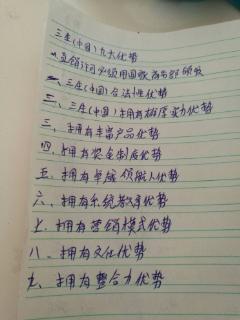 三生(中国)九大优势
直销许可必须用国家商务部颁发
一、三生(中国)合法性优势
二、三生(中国)拥有雄厚实力优势
三、拥有丰富产品优势
四、拥有奖金制度优势
五、拥有卓越领航人优势
六、拥有系统教育优势
七、拥有营销模式优势
八、拥有文化优势
九、拥有整合力优势